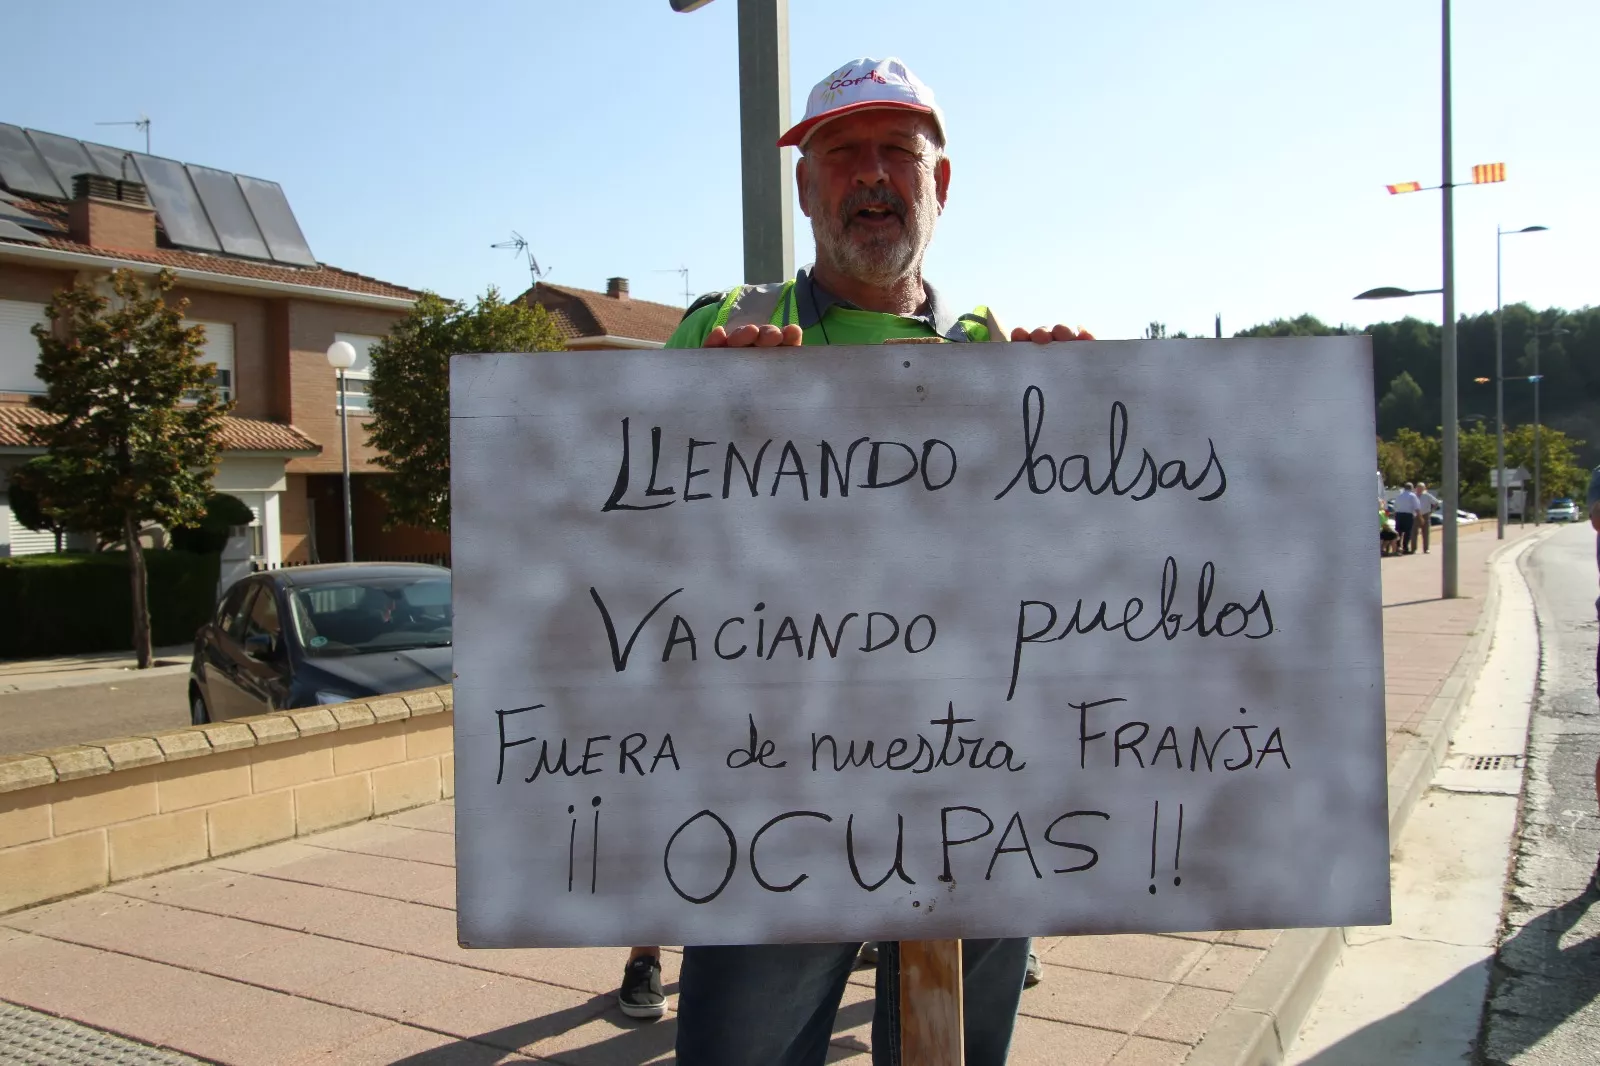 Cofidis
LLENANDO balsas
VACiANDO pueblos
FUERA de nuestra FRANjA
¡¡ OCUPAS !!